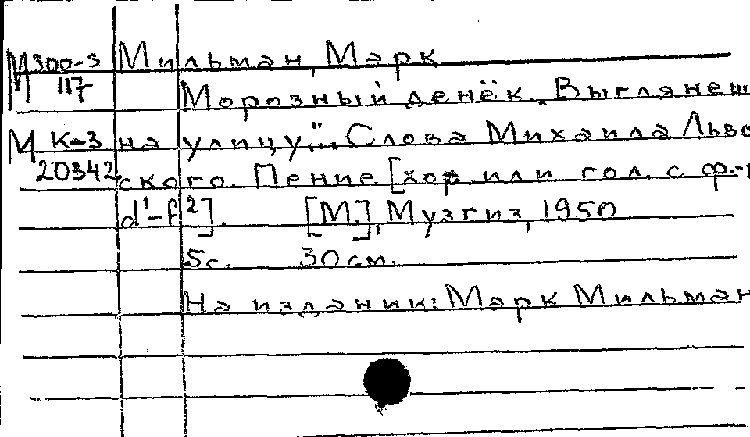 М 300-3 Мильман, Марк
117 Морозный денёк. "Выглянеш
М К-3 на улицу"... Слова Михаила Льво
20342 ского. Пение [хор или гол. с ф.-
d¹-f²]. [М.], Музгиз, 1950
5с. 30 см.
На издании: Марк Мильман